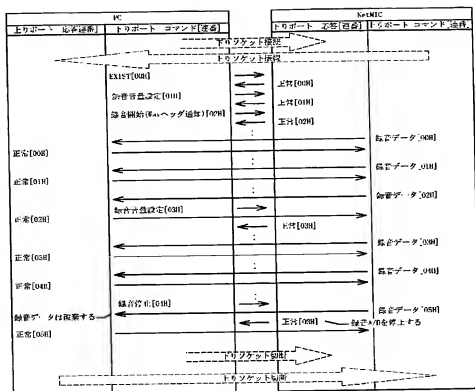 PC
NetMIC
上りポート 応答[連番]
下りポート コマンド[連番]
下りポート 応答[連番]
上りポート コマンド[連番]
下りソケット接続
上りソケット接続
EXIST[00H]
正常[00H]
録音音量設定[01H]
正常[01H]
録音開始(ヘッダ通知)[02H]
正常[02H]
録音データ[00H]
正常[00H]
録音データ[01H]
正常[01H]
録音データ[02H]
正常[02H]
録音音量設定[03H]
正常[03H]
録音データ[03H]
正常[03H]
録音データ[04H]
正常[04H]
録音停止[04H]
録音データ[05H]
録音データは破棄する
正常[05H]
録音A/Dを停止する
正常[05H]
下りソケット切断
ソケット切断